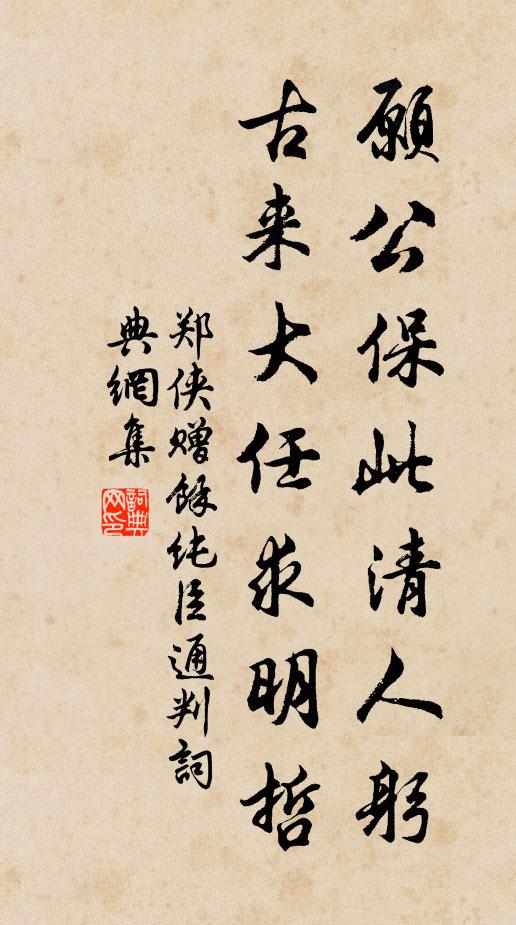 願公保此清人躬
古来大任求明哲
郑侠赠馀纯臣通判詞
典網集
詞典網印